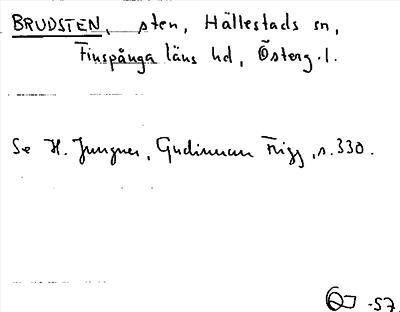 BRUDSTEN, sten, Hällestads sn,
Finspånga läns hd, Österg. l.
Se H. Jungner, Gudinnan Frigg, s. 330.
-57.